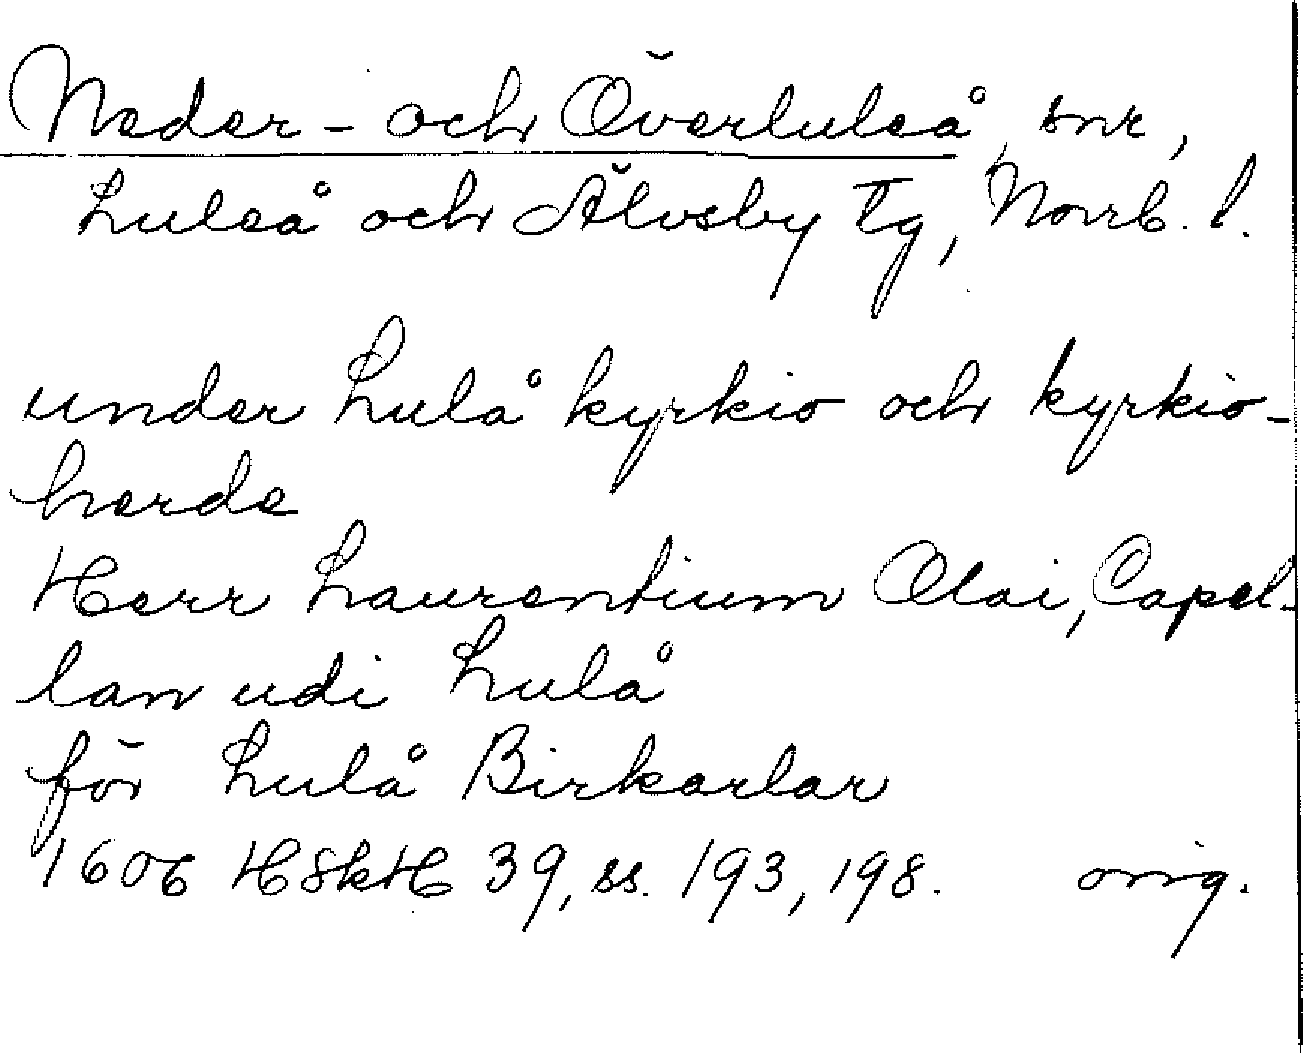 Neder- och Överluleå, snr,
Luleå och Älvsby tg, Norrb. l.
under Lulå kyrkio och kyrkio-
herde
Herr Laurentium Olai, Capel-
lan udi Lulå
för Lulå Birkarlar
1606 HSkH 39, ss. 193, 198. orig.